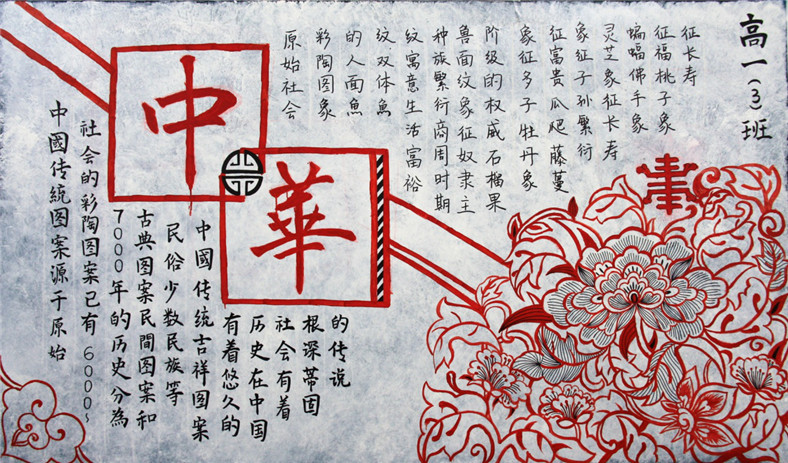 高一(3)班
中
華
中國传統图案源于原始
社会的彩陶图案已有6000~
7000年的历史分為
古典图案民間图案和
民俗少数民族等
中國传统吉祥图案
有着悠久的
历史在中国
社会有着
根深蒂固
的传说
原始社会
彩陶图象
的人面魚
纹双体魚
纹寓意生活富裕
种族繁衍商周时期
兽面纹象征奴隶主
阶级的权威石榴果
象征多子牡丹象
征富贵瓜瓞藤蔓
象征子孙繁衍
灵芝象征长寿
蝙蝠佛手象
征福桃子象
征长寿